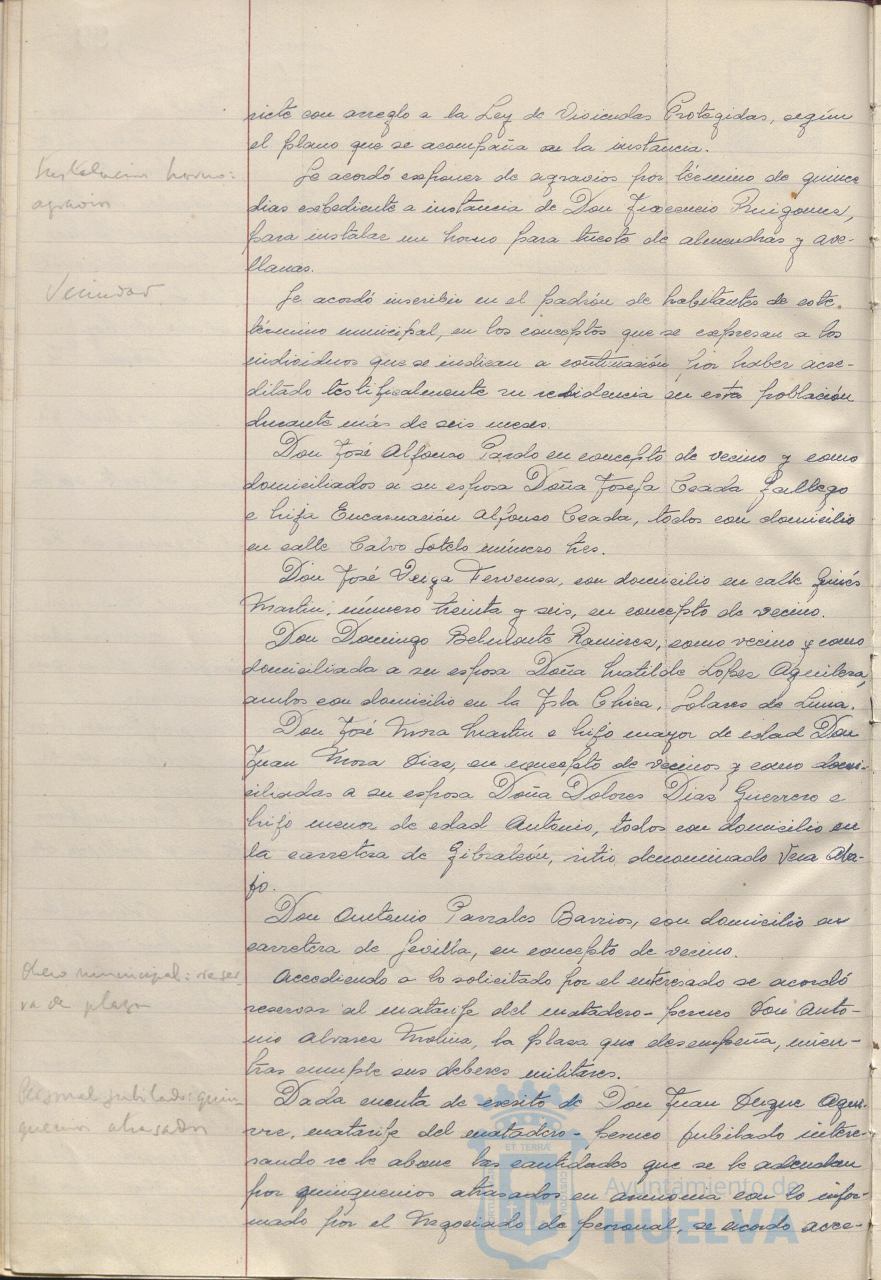 siete con arreglo a la Ley de Viviendas Protegidas, según
el plano que se acompaña en la instancia.
Instalación horno:
agravios
Se acordó exponer de agravios por término de quince
dias expediente a instancia de Don Inocencio Ruigomez,
para instalar un horno para tueste de almendras y ave-
llanas.
Vecindad
Se acordó inscribir en el padrón de habitantes de este
término municipal, en los conceptos que se expresan a los
individuos que se indican a continuación, por haber acre-
ditado testificalmente su residencia en esta población
durante más de seis meses.
Don José Alfonso Pardo en concepto de vecino y como
domiciliados a su esposa Doña Josefa Ceada Gallego
e hija Encarnación Alfonso Ceada, todos con domicilio
en calle Calvo Sotelo número tres.
Don José Verga, con domicilio en calle Ginés
Martin, número treinta y seis, en concepto de vecino.
Don Domingo Belmonte Ramirez, como vecino y como
domiciliada a su esposa Doña Matilde López Aguilera,
ambos con domicilio en la Isla Chica, Solares de Luna.
Don José Mora Martin e hijo mayor de edad Don
Juan Mora Dias, en concepto de vecinos y como domi-
ciliadas a su esposa Doña Dolores Dias Guerrero e
hijo menor de edad Antonio, todos con domicilio en
la carretera de Gibraleón, sitio denominado Vega Aba-
jo.
Don Antonio Parrales Barrios, con domicilio en
carretera de Sevilla, en concepto de vecino.
Obrero municipal: reser-
va de plaza
Accediendo a lo solicitado por el interesado se acordó
reservar al matarife del matadero-perneo Don Anto-
nio Alvarez Molina, la plaza que desempeña, mien-
tras cumple sus deberes militares.
Personal jubilado: quin-
quenios atrasados
Dada cuenta de escrito de Don Juan Duque Agui-
rre, matarife del matadero-perneo jubilado intere-
sando se le abone las cantidades que se le adeudan
por quinquenios atrasados en armonia con lo infor-
mado por el Negociado de personal, se acordó acce-
ET TERRÆ
Ayuntamiento de
HUELVA